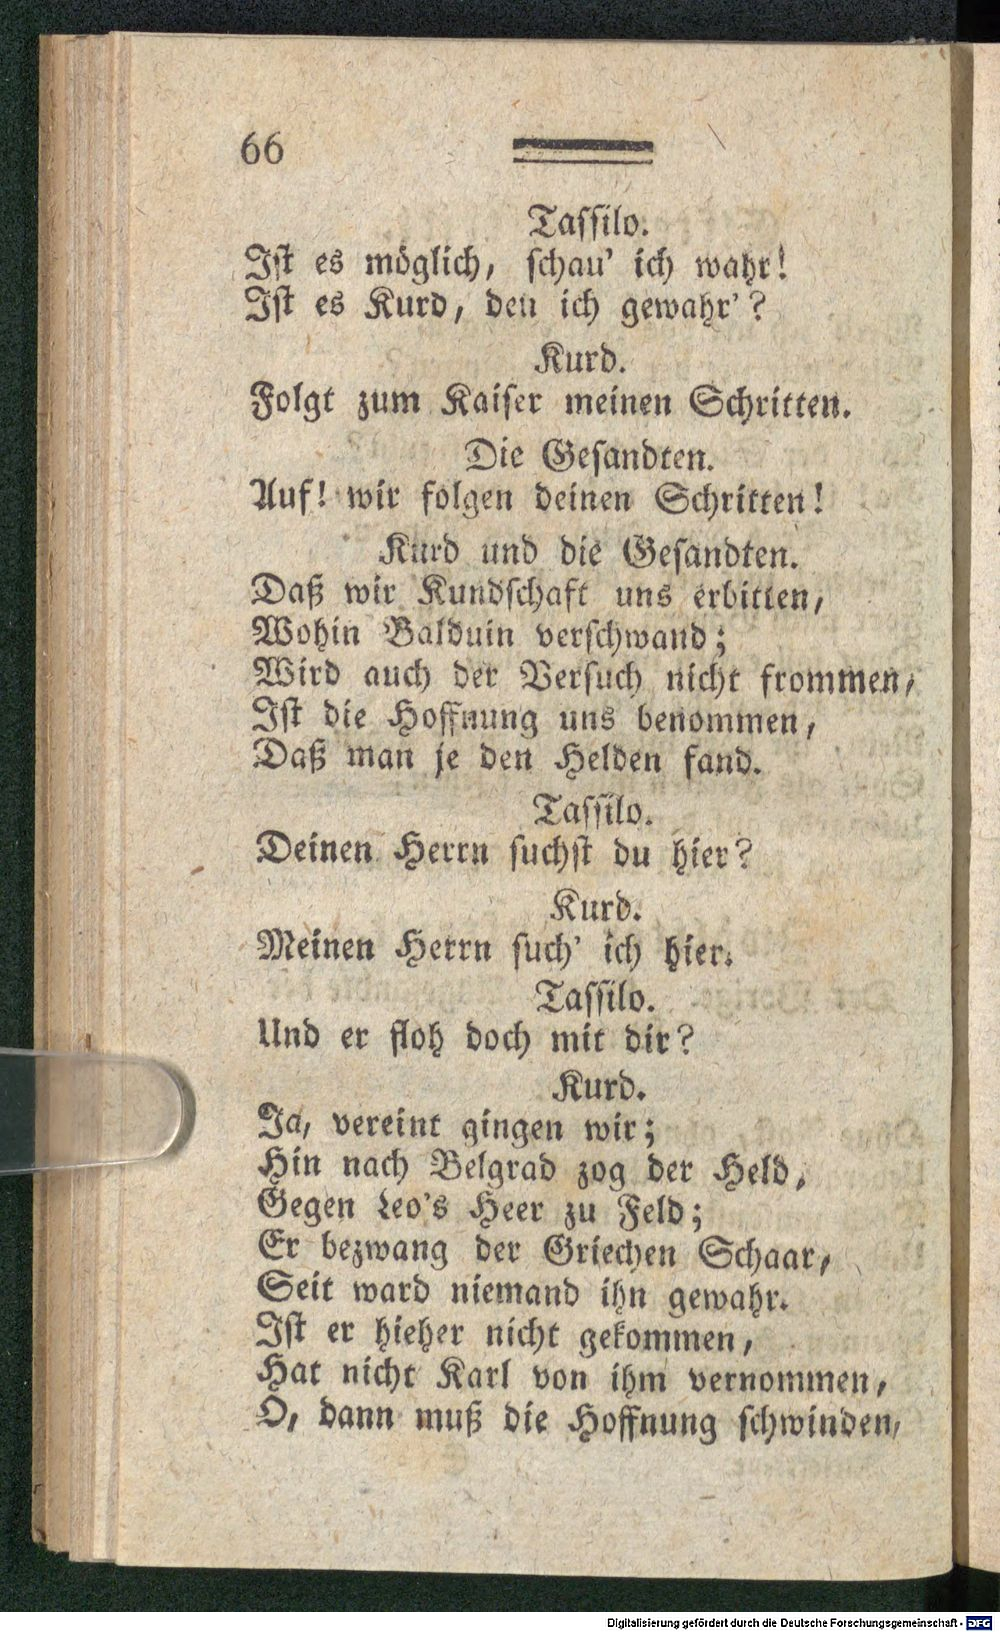 66
Tassilo.
Ist es möglich, schau' ich wahr!
Ist es Kurd, den ich gewahr'?
Kurd.
Folgt zum Kaiser meinen Schritten.
Die Gesandten.
Auf! wir folgen deinen Schritten!
Kurd und die Gesandten.
Daß wir Kundschaft uns erbitten,
Wohin Balduin verschwand;
Wird auch der Versuch nicht frommen,
Ist die Hoffnung uns benommen,
Daß man je den Helden fand.
Tassilo.
Deinen Herrn suchst du hier?
Kurd.
Meinen Herrn such' ich hier.
Tassilo.
Und er floh doch mit dir?
Kurd.
Ja, vereint gingen wir;
Hin nach Belgrad zog der Held,
Gegen Leo's Heer zu Feld;
Er bezwang der Griechen Schaar,
Seit ward niemand ihn gewahr.
Ist er hieher nicht gekommen,
Hat nicht Karl von ihm vernommen,
O, dann muß die Hoffnung schwinden,
Digitalisierung gefördert durch die Deutsche Forschungsgemeinschaft - DFG